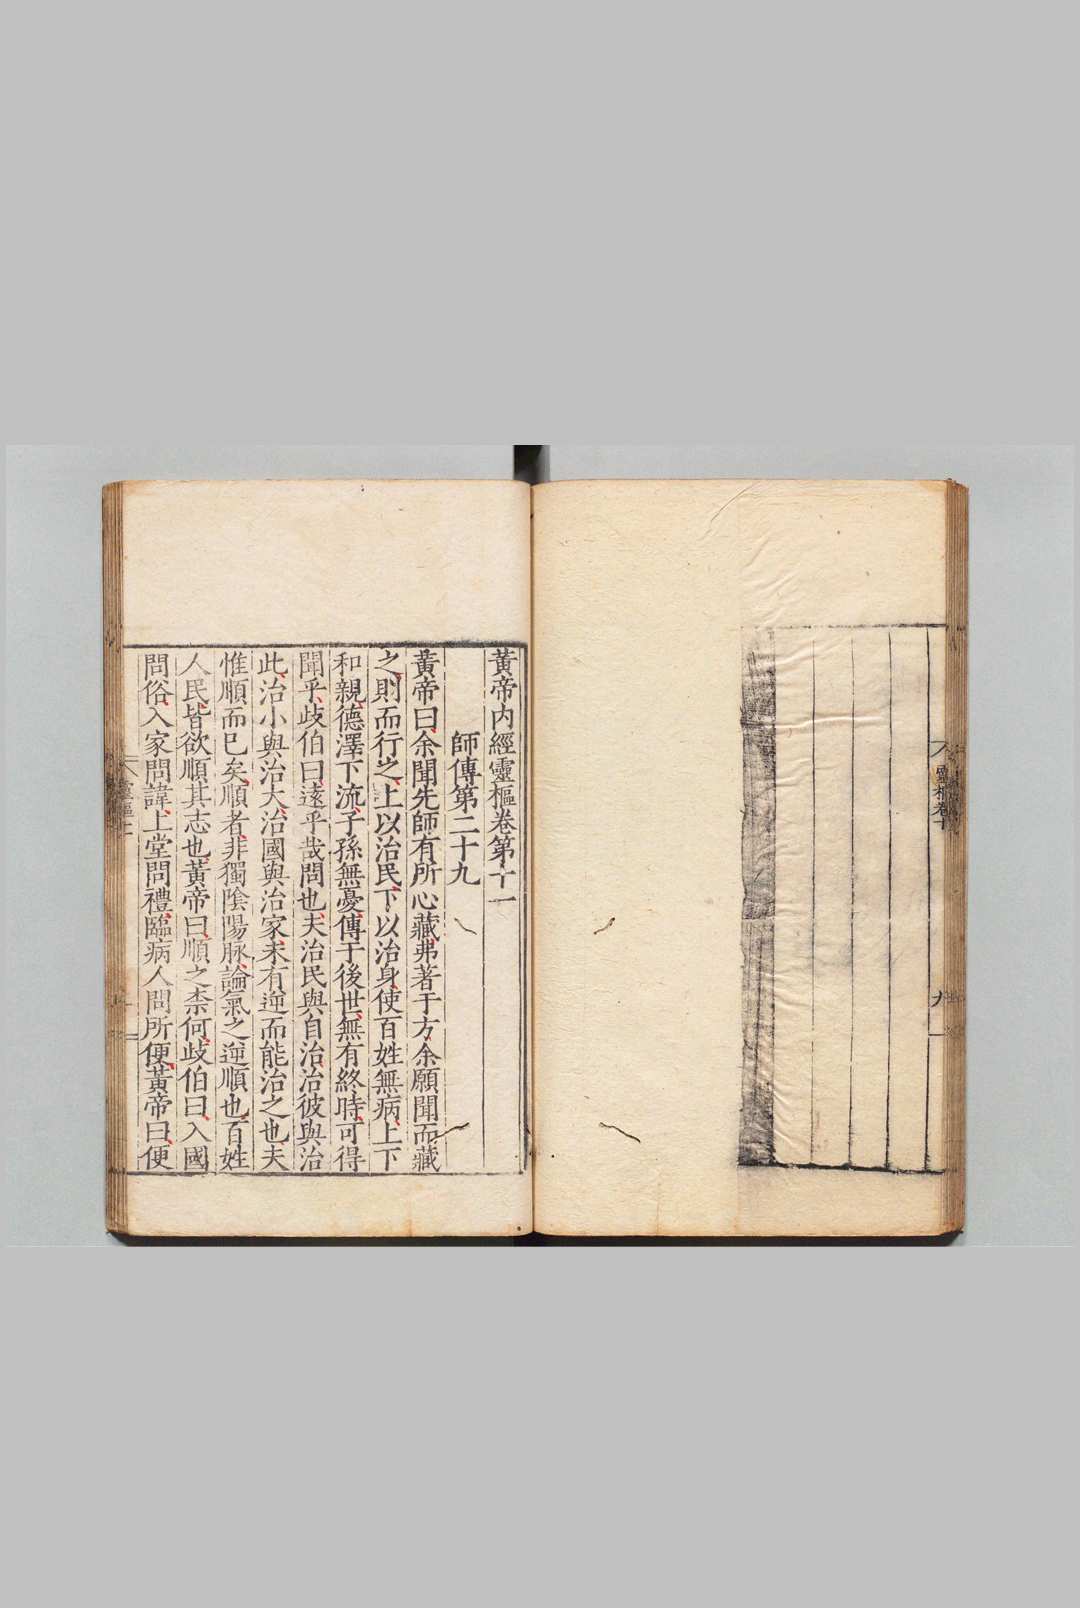 靈樞卷十
九
黃帝内經靈樞卷第十一
師傳第二十九
黃帝曰余聞先師有所心藏弗著于方余願聞而藏
之則而行之上以治民下以治身使百姓無病上下
和親德澤下流子孫無憂傳于後世無有終時可得
聞乎歧伯曰遠乎哉問也夫治民與自治治彼與治
此治小與治大治國與治家未有逆而能治之也夫
惟順而已矣順者非獨陰陽脉論氣之逆順也百姓
人民皆欲順其志也黃帝曰順之柰何歧伯曰入國
問俗入家問諱上堂問禮臨病人問所便黃帝曰便
靈樞十一